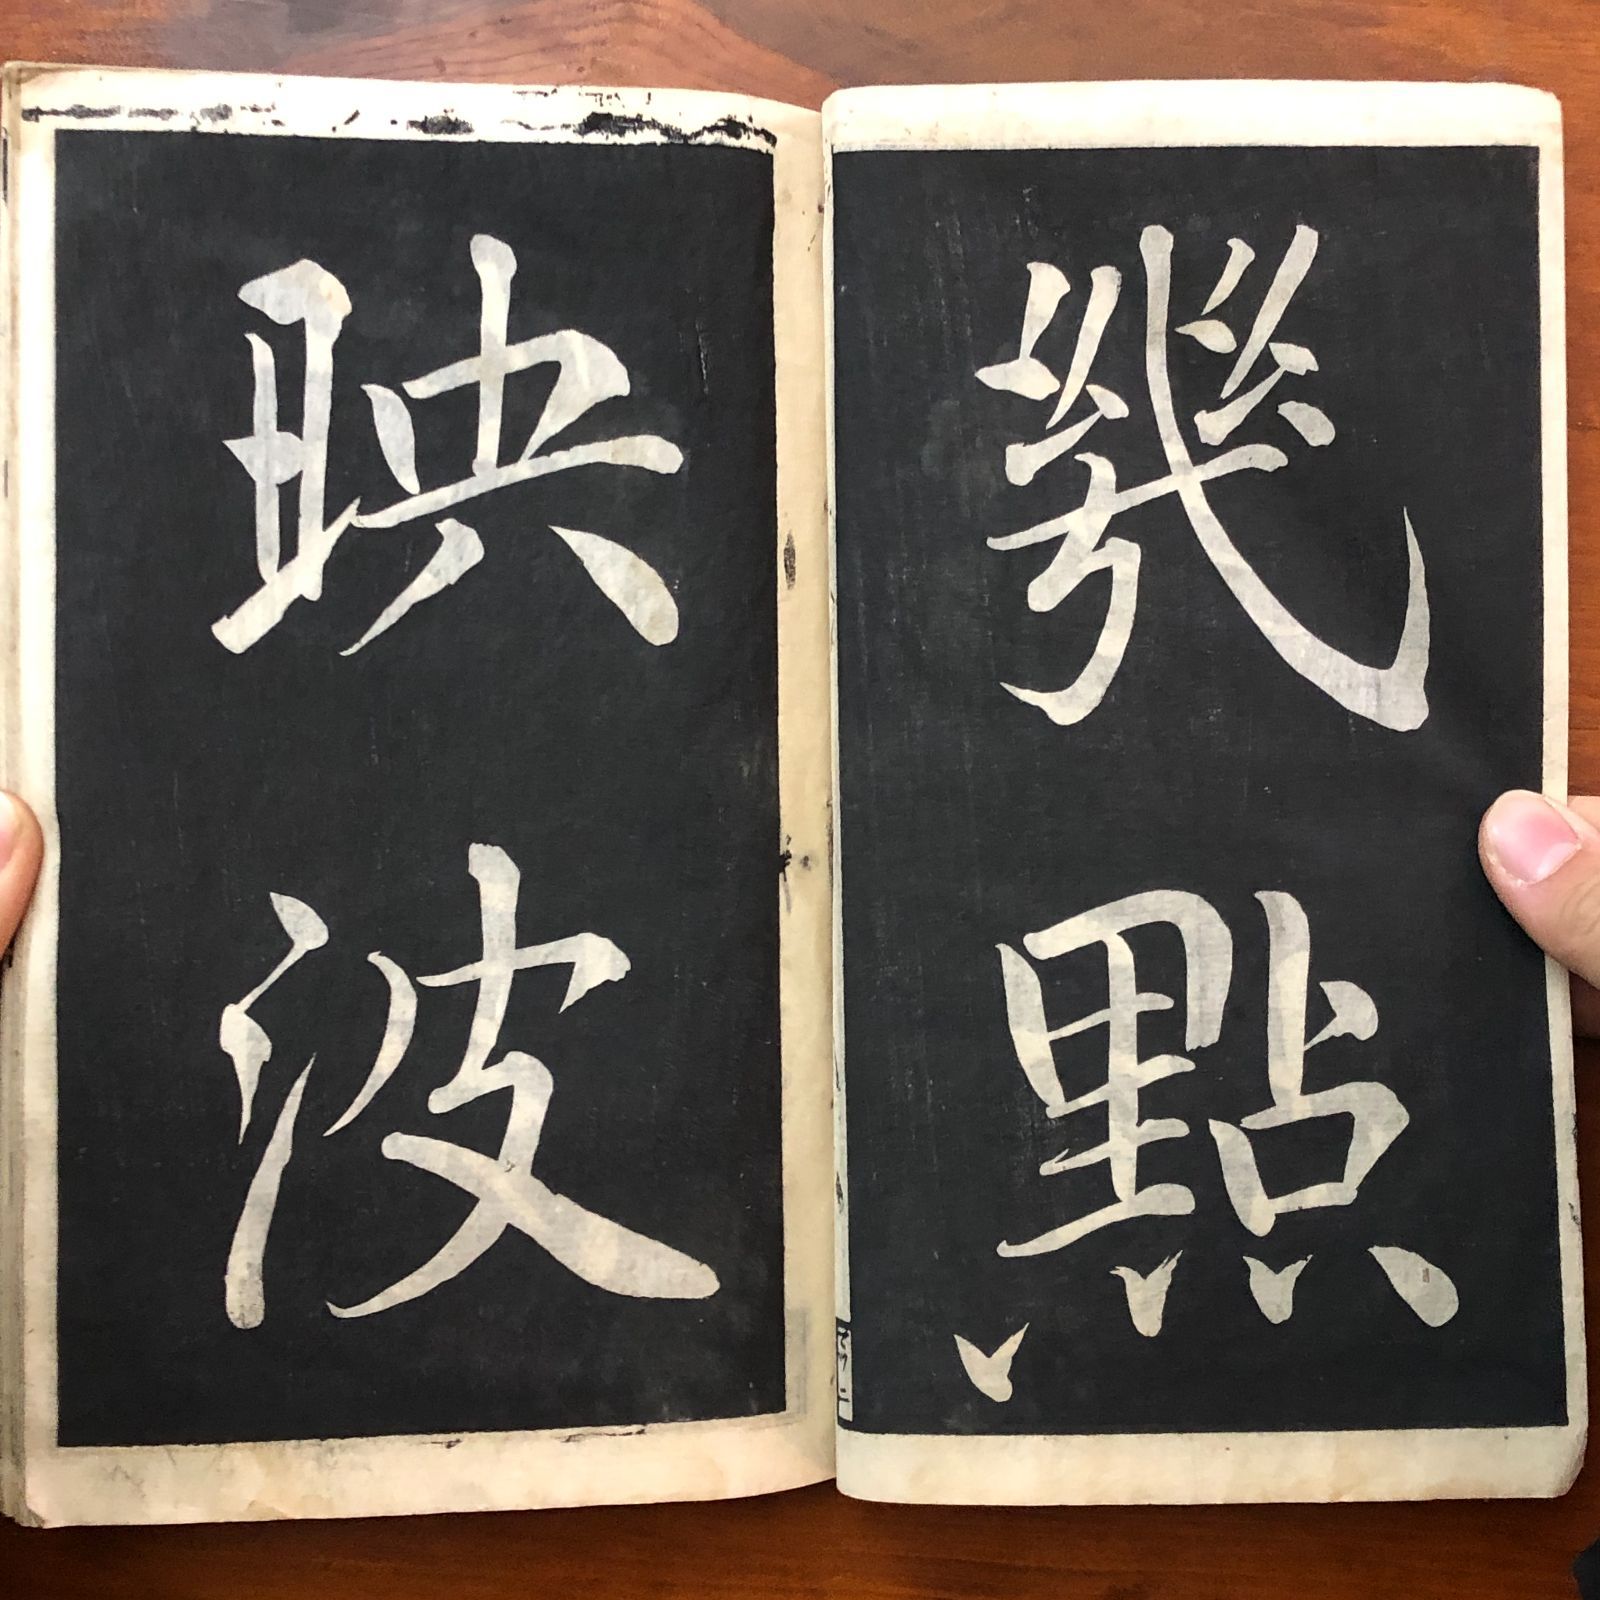 幾點
映波